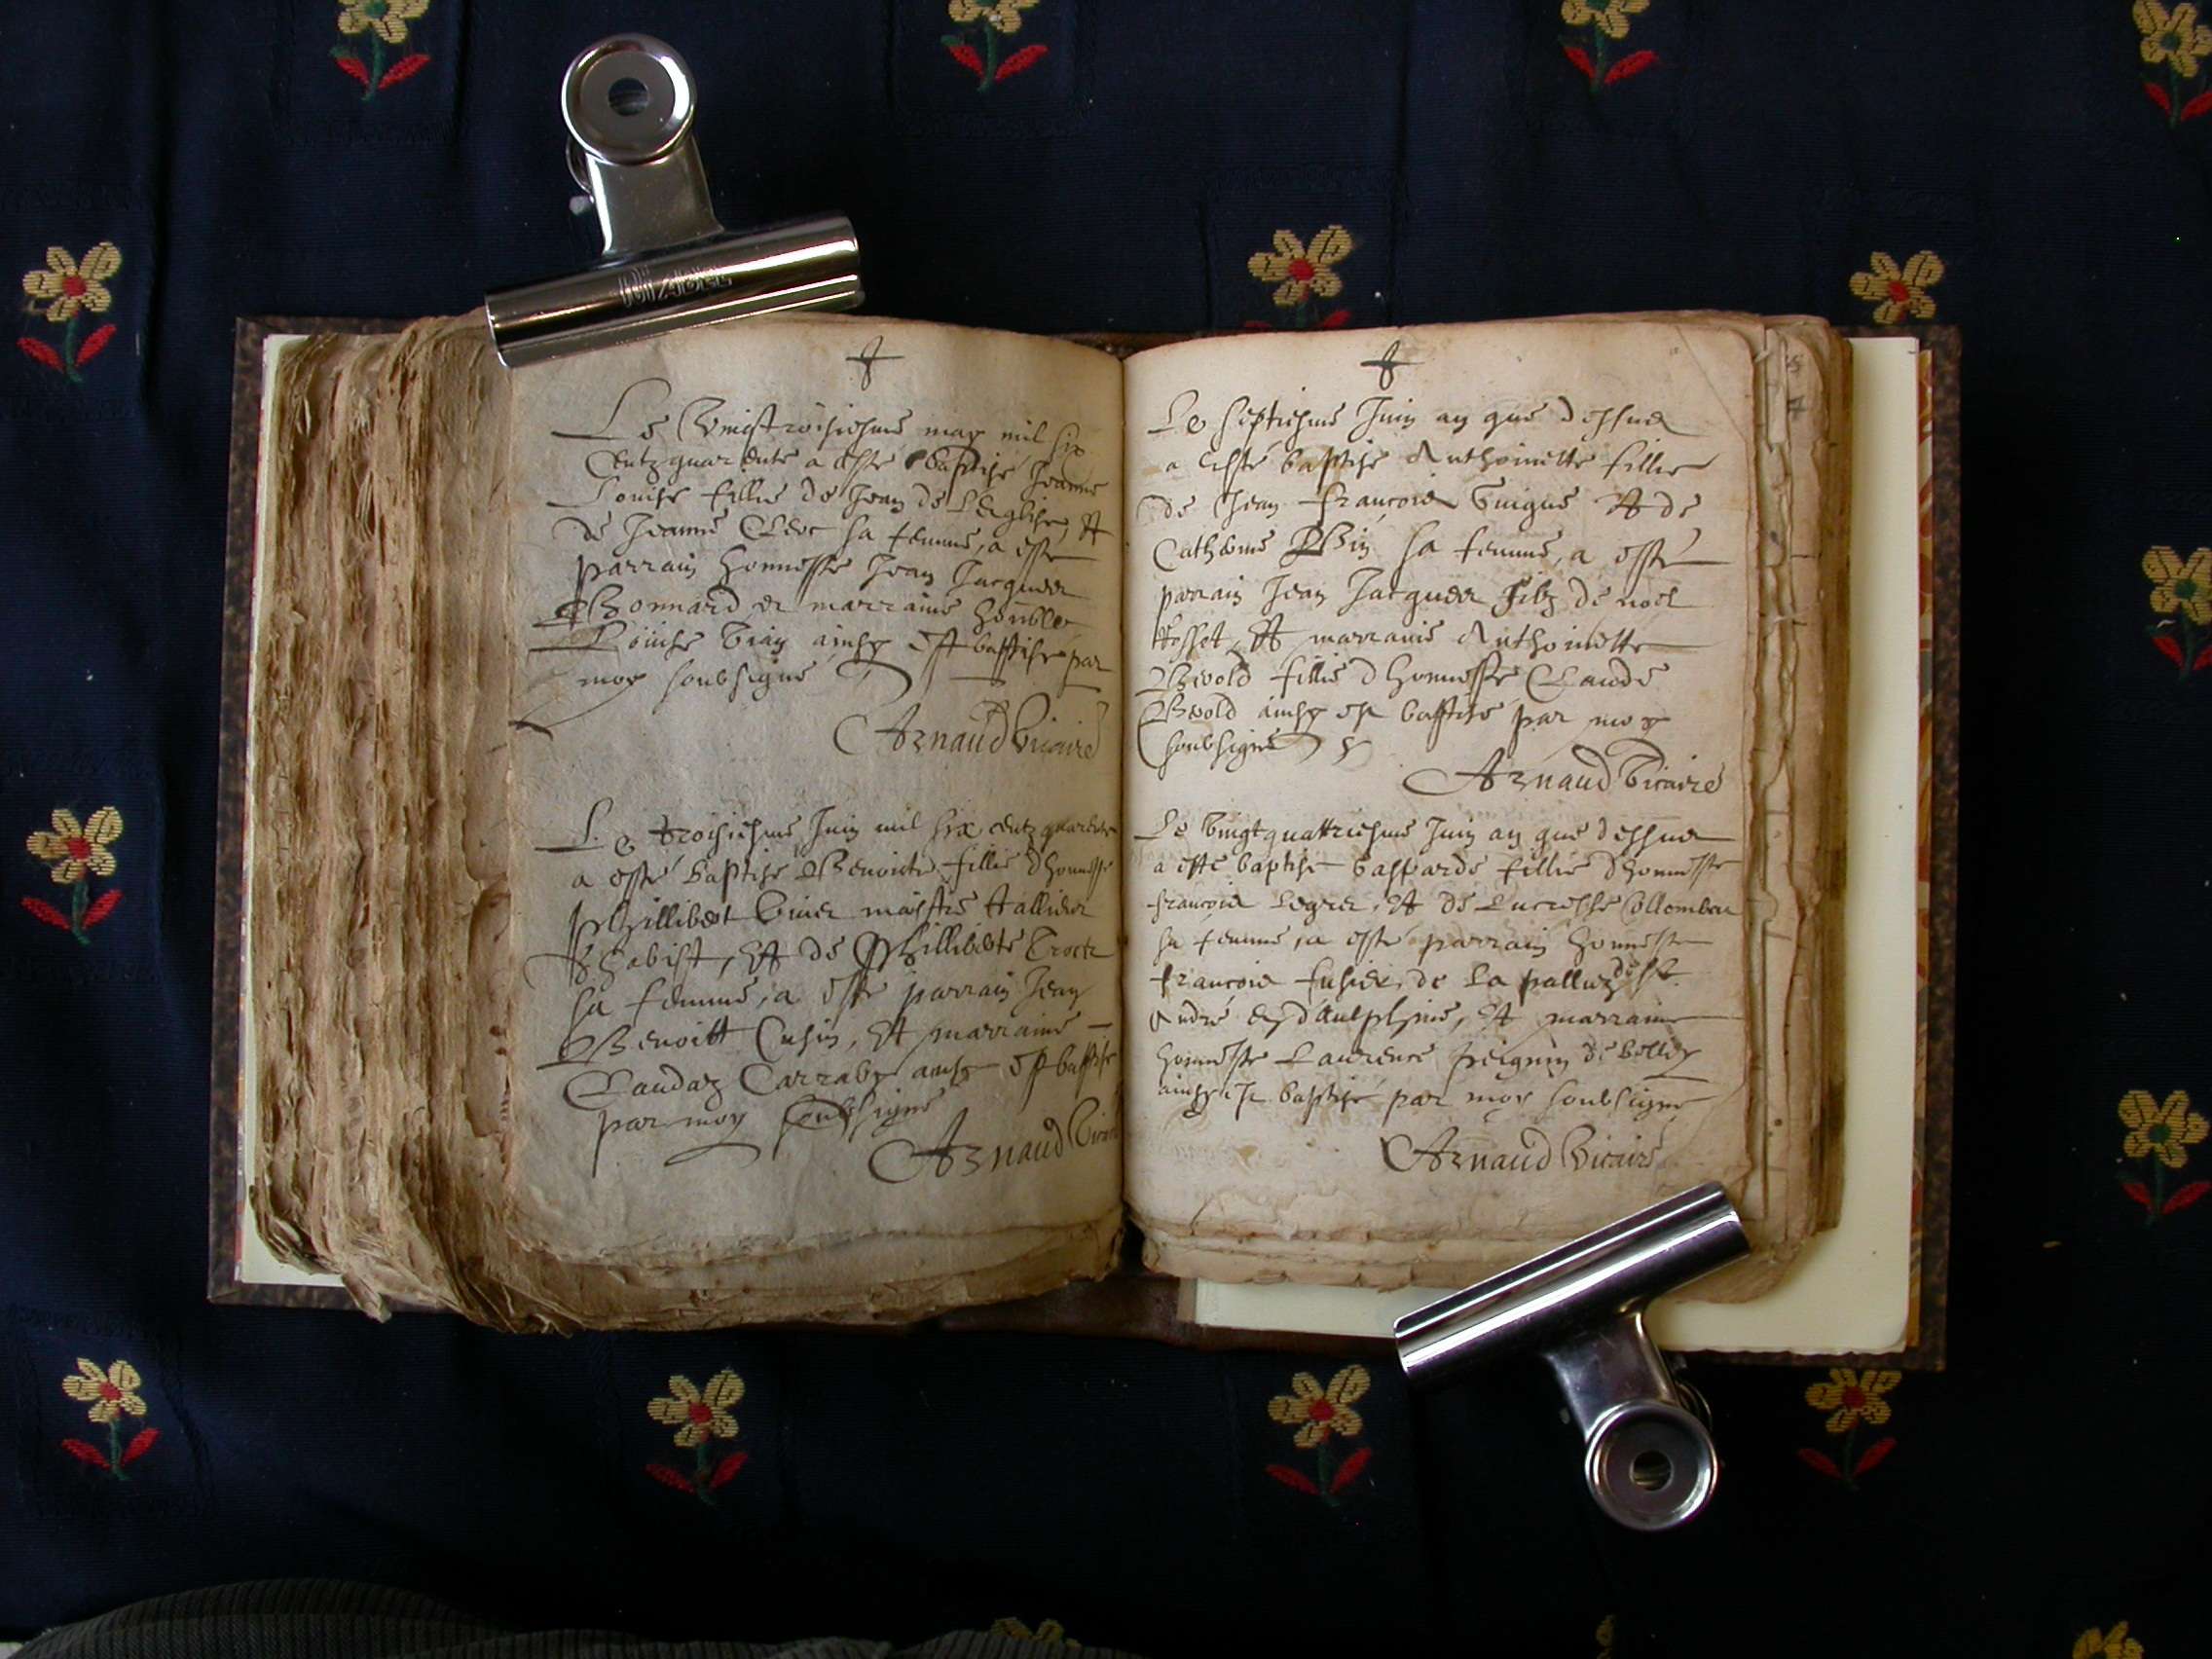 Le vingtroisiesme may mil six
centz quarente a esté baptisé Jeanne
Louise fillie de Jean de Leglise, et
de Jeanne Clerc sa femme, a esté
parrain honneste Jean Jacques
Bonnard et marraine honble
Louise ainsy est baptisé par
moy soubsigné
Arnaud Vicaire
Le troisiesme Juin mil six centz quarente
a esté baptisé Benoicte fillie d'honneste
phillibert maistre
et de Philliberte
sa femme, a esté parrain Jean
Benoitt Cusin, et marraine
Claudaz Carraby ainsy est baptisé
par moy soubsigné
Arnaud Vicaire
Le septiesme Juin an que dessus
a esté baptisé Anthoinette fillie
de Jean françois Guigue et de
Catherine sa femme, a esté
parrain Jean Jacques filz de noel
et marraine Anthoinette
fillie d'honneste Claude
ainsy est baptisé par moy
soubsigné
Arnaud Vicaire
Le vingtquattriesme Juin an que dessus
a esté baptisé gasparde fillie d'honneste
françois Legier, et de Lucresse Collomben
sa femme, a esté parrain honneste
françois fusier, de La palluz de St
André en daulphiné, et marraine
honneste Laurence peignin de belley
ainsy est baptisé par moy soubsigné
Arnaud Vicaire